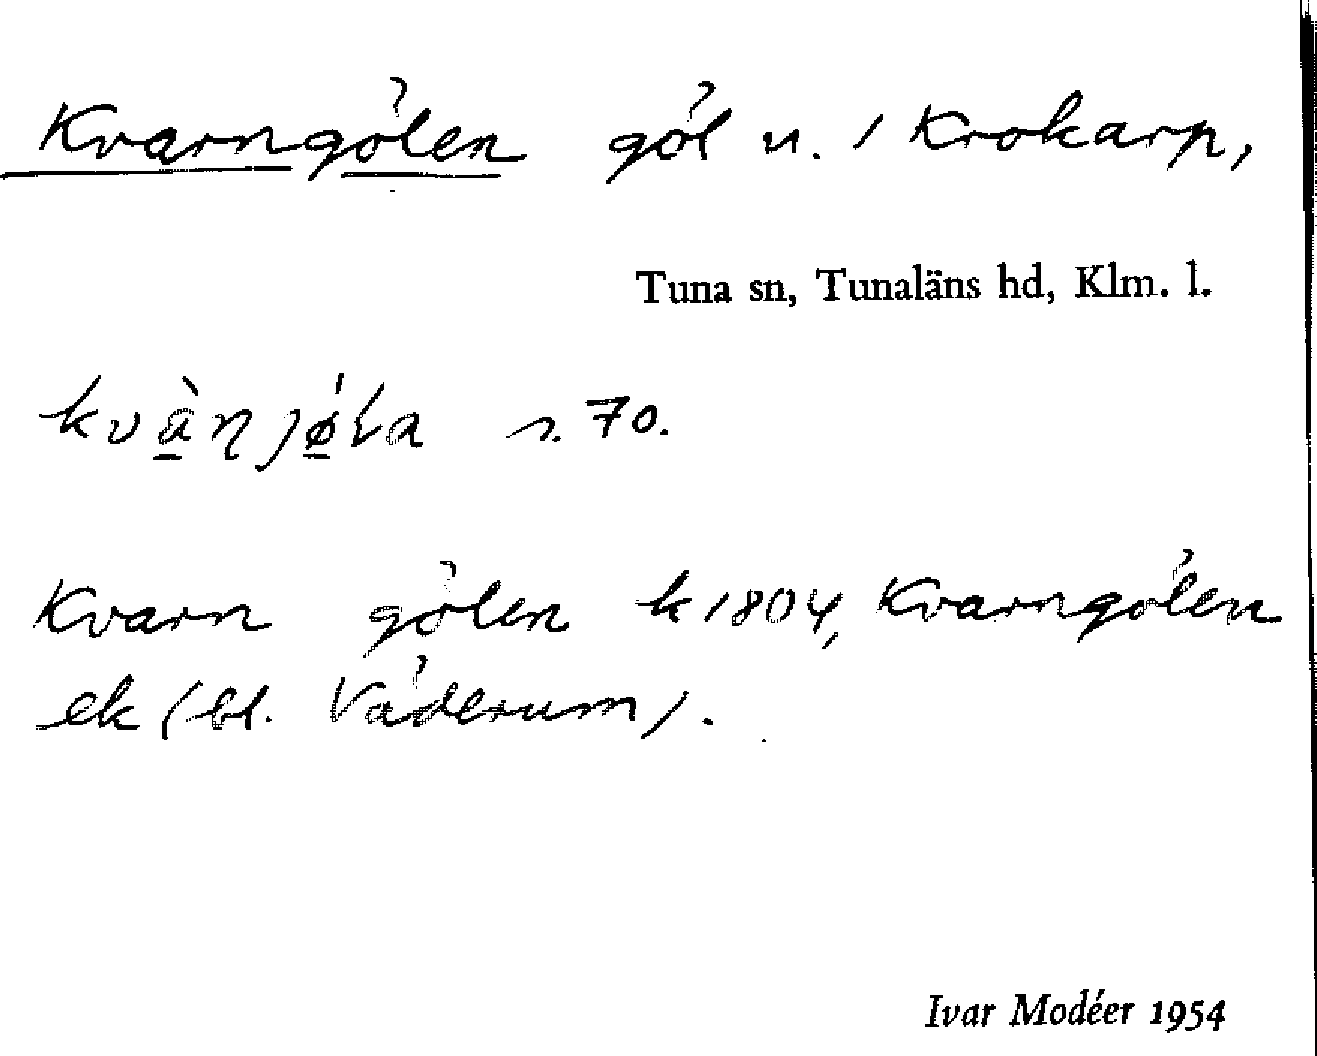 Kvarngölen göl u. / Krokarp,
Tuna sn, Tunaläns hd, Klm. l.
s. 70.
Kvarn gölen k 1804, Kvarngölen
ek (bl. Väderum).
Ivar Modéer 1954